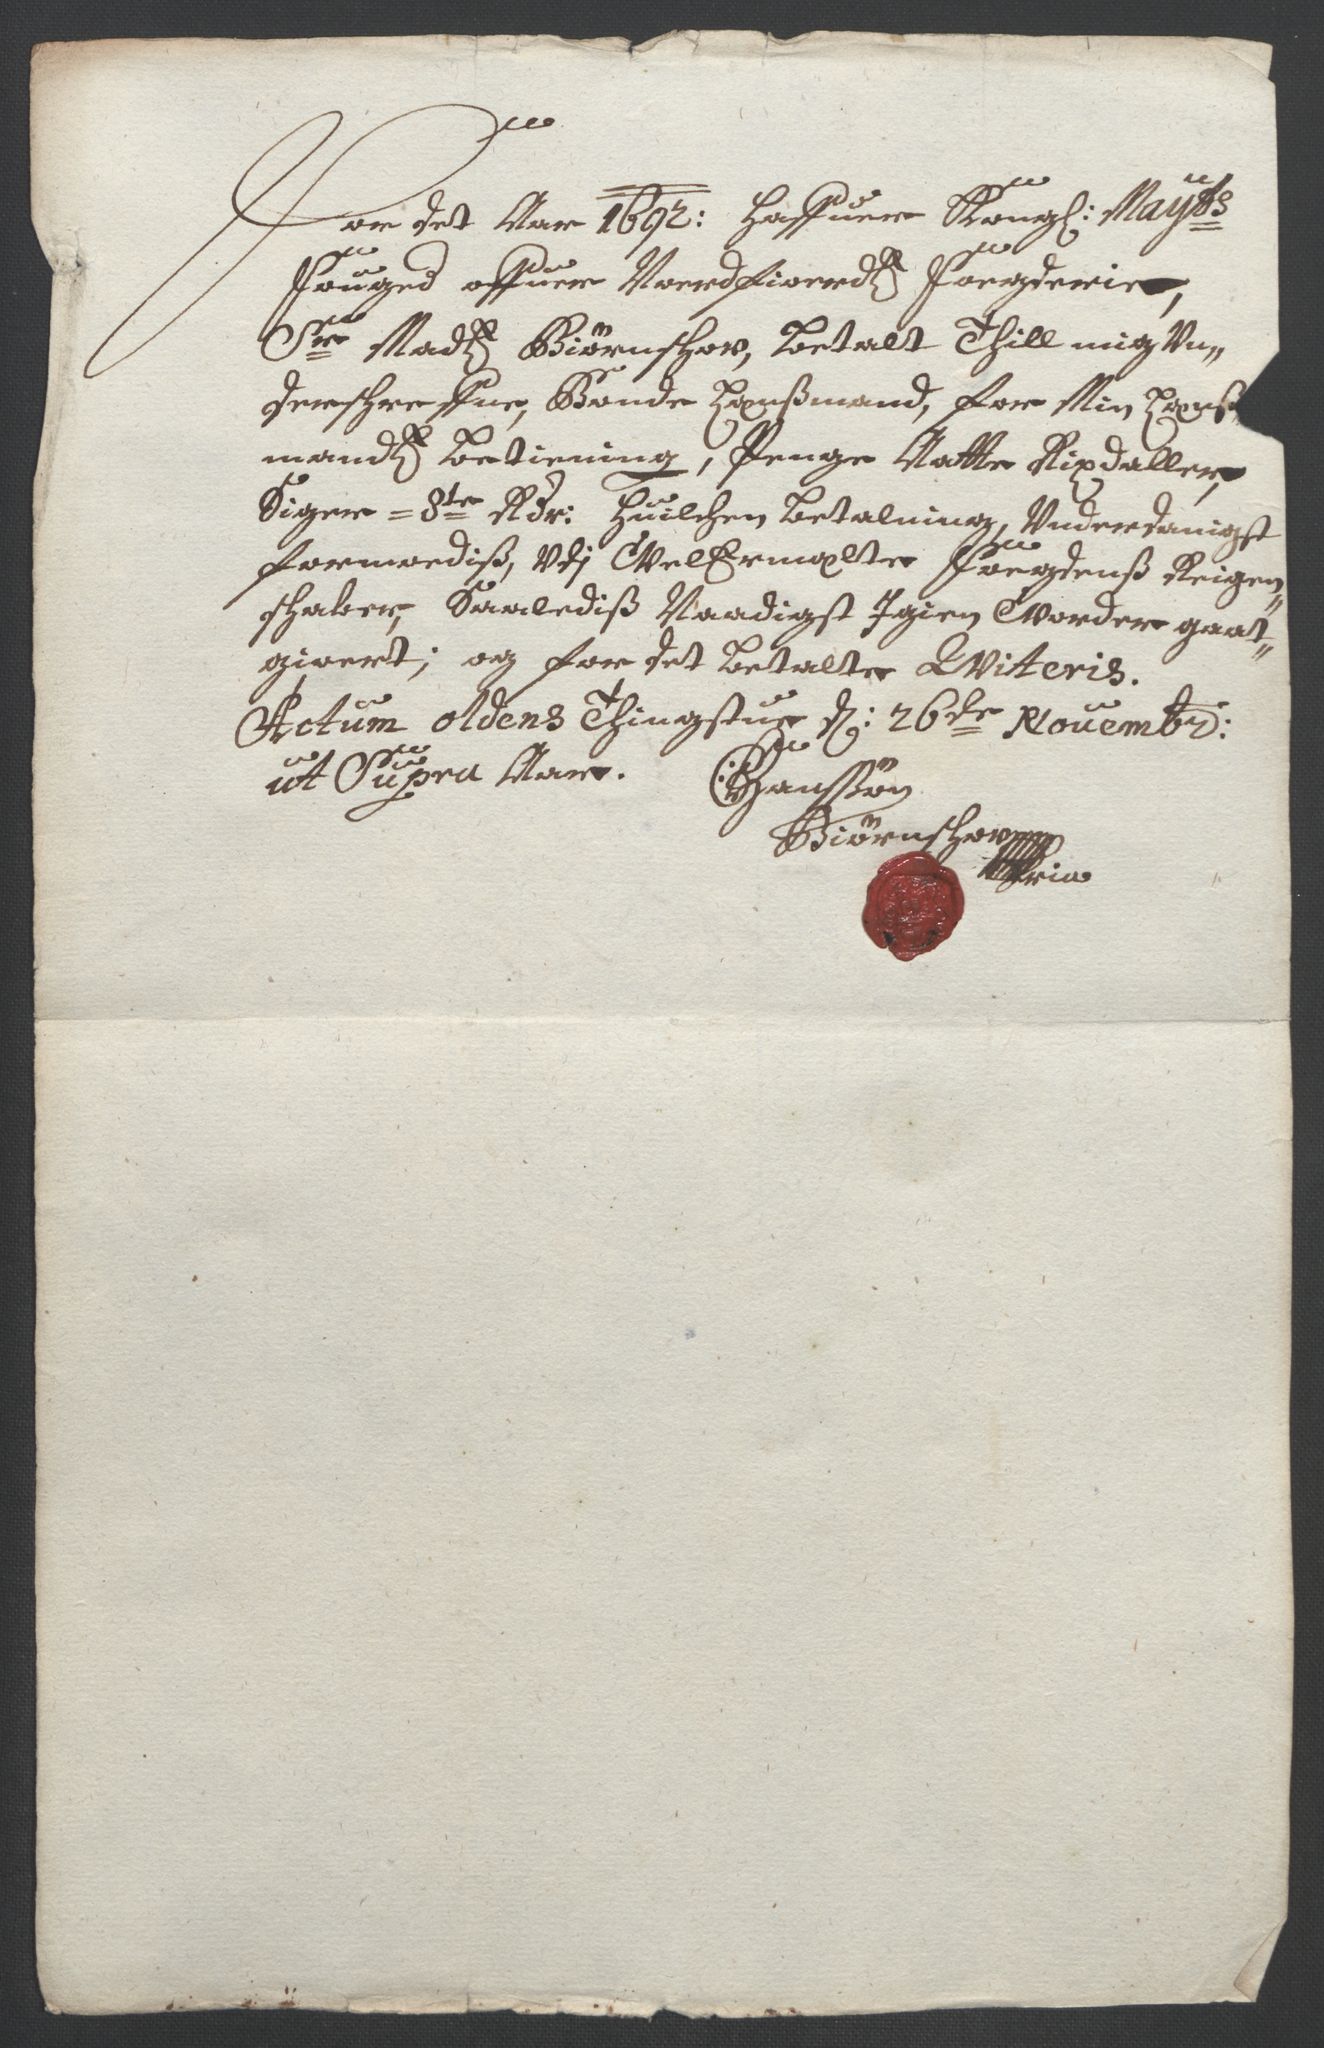 For det Aar 1692: Haffuer Kongl: Mayts
Fouged offuer Noerdfiords Foegderie,
Sr Mads Biørnschov, betalt Thill mig Vn„
derschreffne, Bonde Lenßmand, for Min Lenß
mands betiening, Penge Aatte Rixdaller,
Siger = 8te Rdr: Huilchen betalning, Vnderdanigst
formoediß, Vdj WelErmelte Foegdens Reigen„
schaber, Saalediß Naadigst Igien Worder gaat„
giort; og for det betalte Qviteris.
Actum Oldens Thingstue d: 26de Nouembr:
ut Supra Aar.
C: Hanssøn
Biørnschov
Mpria